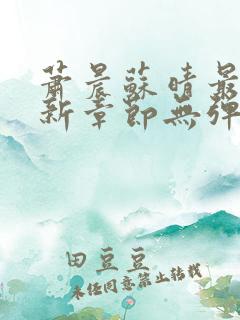 蕭晨蘇晴最
新章節無彈
田豆豆
未经同意禁止转载